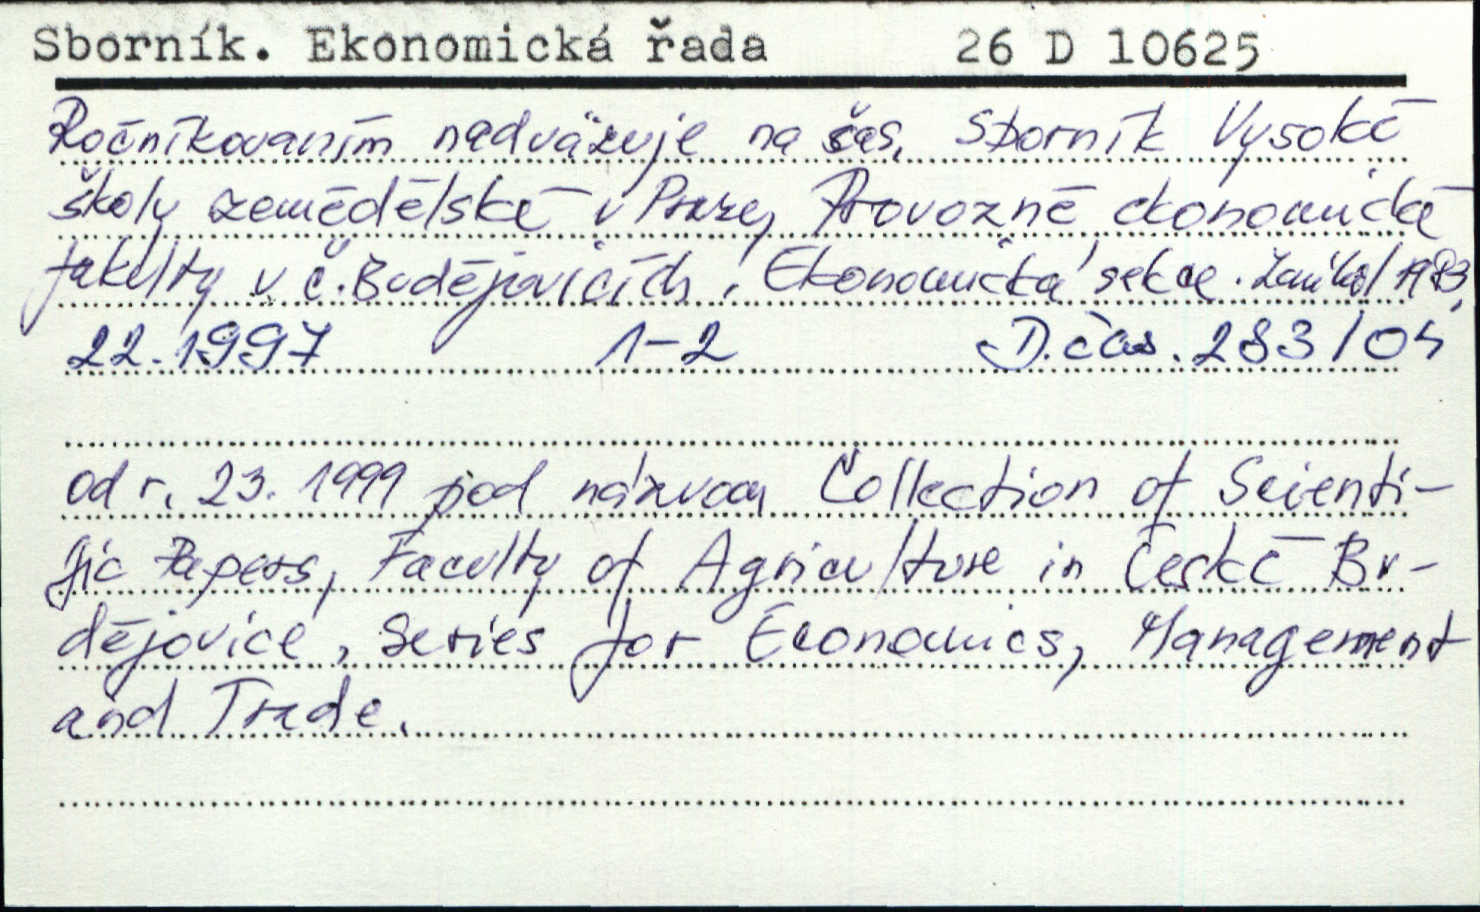 Sborník. Ekonomická řada 26 D 10625
Ročníkovaním nadväzuje na čas. Sborník Vysoké
školy zemědělské v Praze, Provozně ekonomické
fakulty v Č. Budějovicích, Ekonomická sekce. 1983,
22.1997 1-2 D.čas. 283/04
od r. 23. 1999 pod názvom Collection of Scienti-
fic Papers, Faculty of Agriculture in České Bu-
dějovice, Series for Economics, Management
and Trade.